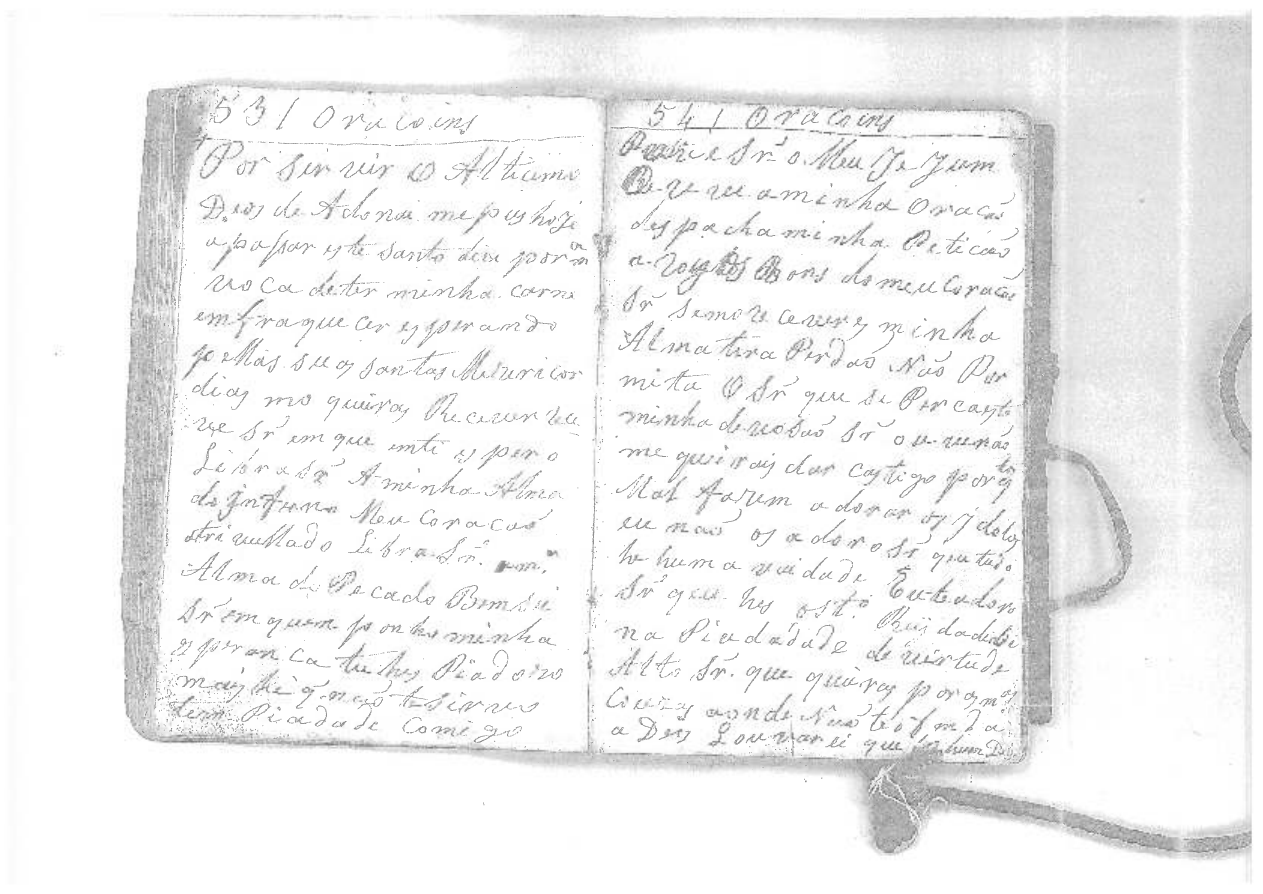 53 / Oracoins
Por Sir vir O Alticimo
Deos de Adonai me pus hoze
a passar este santo dia por m
voca deter minha carne
emfraque cer esperando
pellas suas santas Mizuricor
dias mo queiras Recever
ve Sr. em que em ti espero
Libra Sr. A minha Alma
do Inferno Meu Coracaõ
atrivullado Libra Sr. a m.ª
Alma do Pecado Bem sei
Sr. em quem ponho minha
esperanca tu hes Piadozo
mais hé q naõ te sirvo
tem Piadade Comigo
54 / Oracoins
Sr. o Meu Je Jum
a minha Oracaõ
despacha minha Peticaõ
a Bons do meu Coracaõ
Sr. minha
Alma tira Perdaõ Naõ Por
mita O Sr. que se Per
minha devosaõ Sr.
me queirais dar castigo por
Mal fazem adorar os ydolos
eu naõ os adoro Sr. que tudo
he huma vaidade Eu te adoro
Sr. que hes
na Piadádade de virtude
Alto Sr. que queiras por
Couzas aonde Naõ
a Deos Louvarei que hum